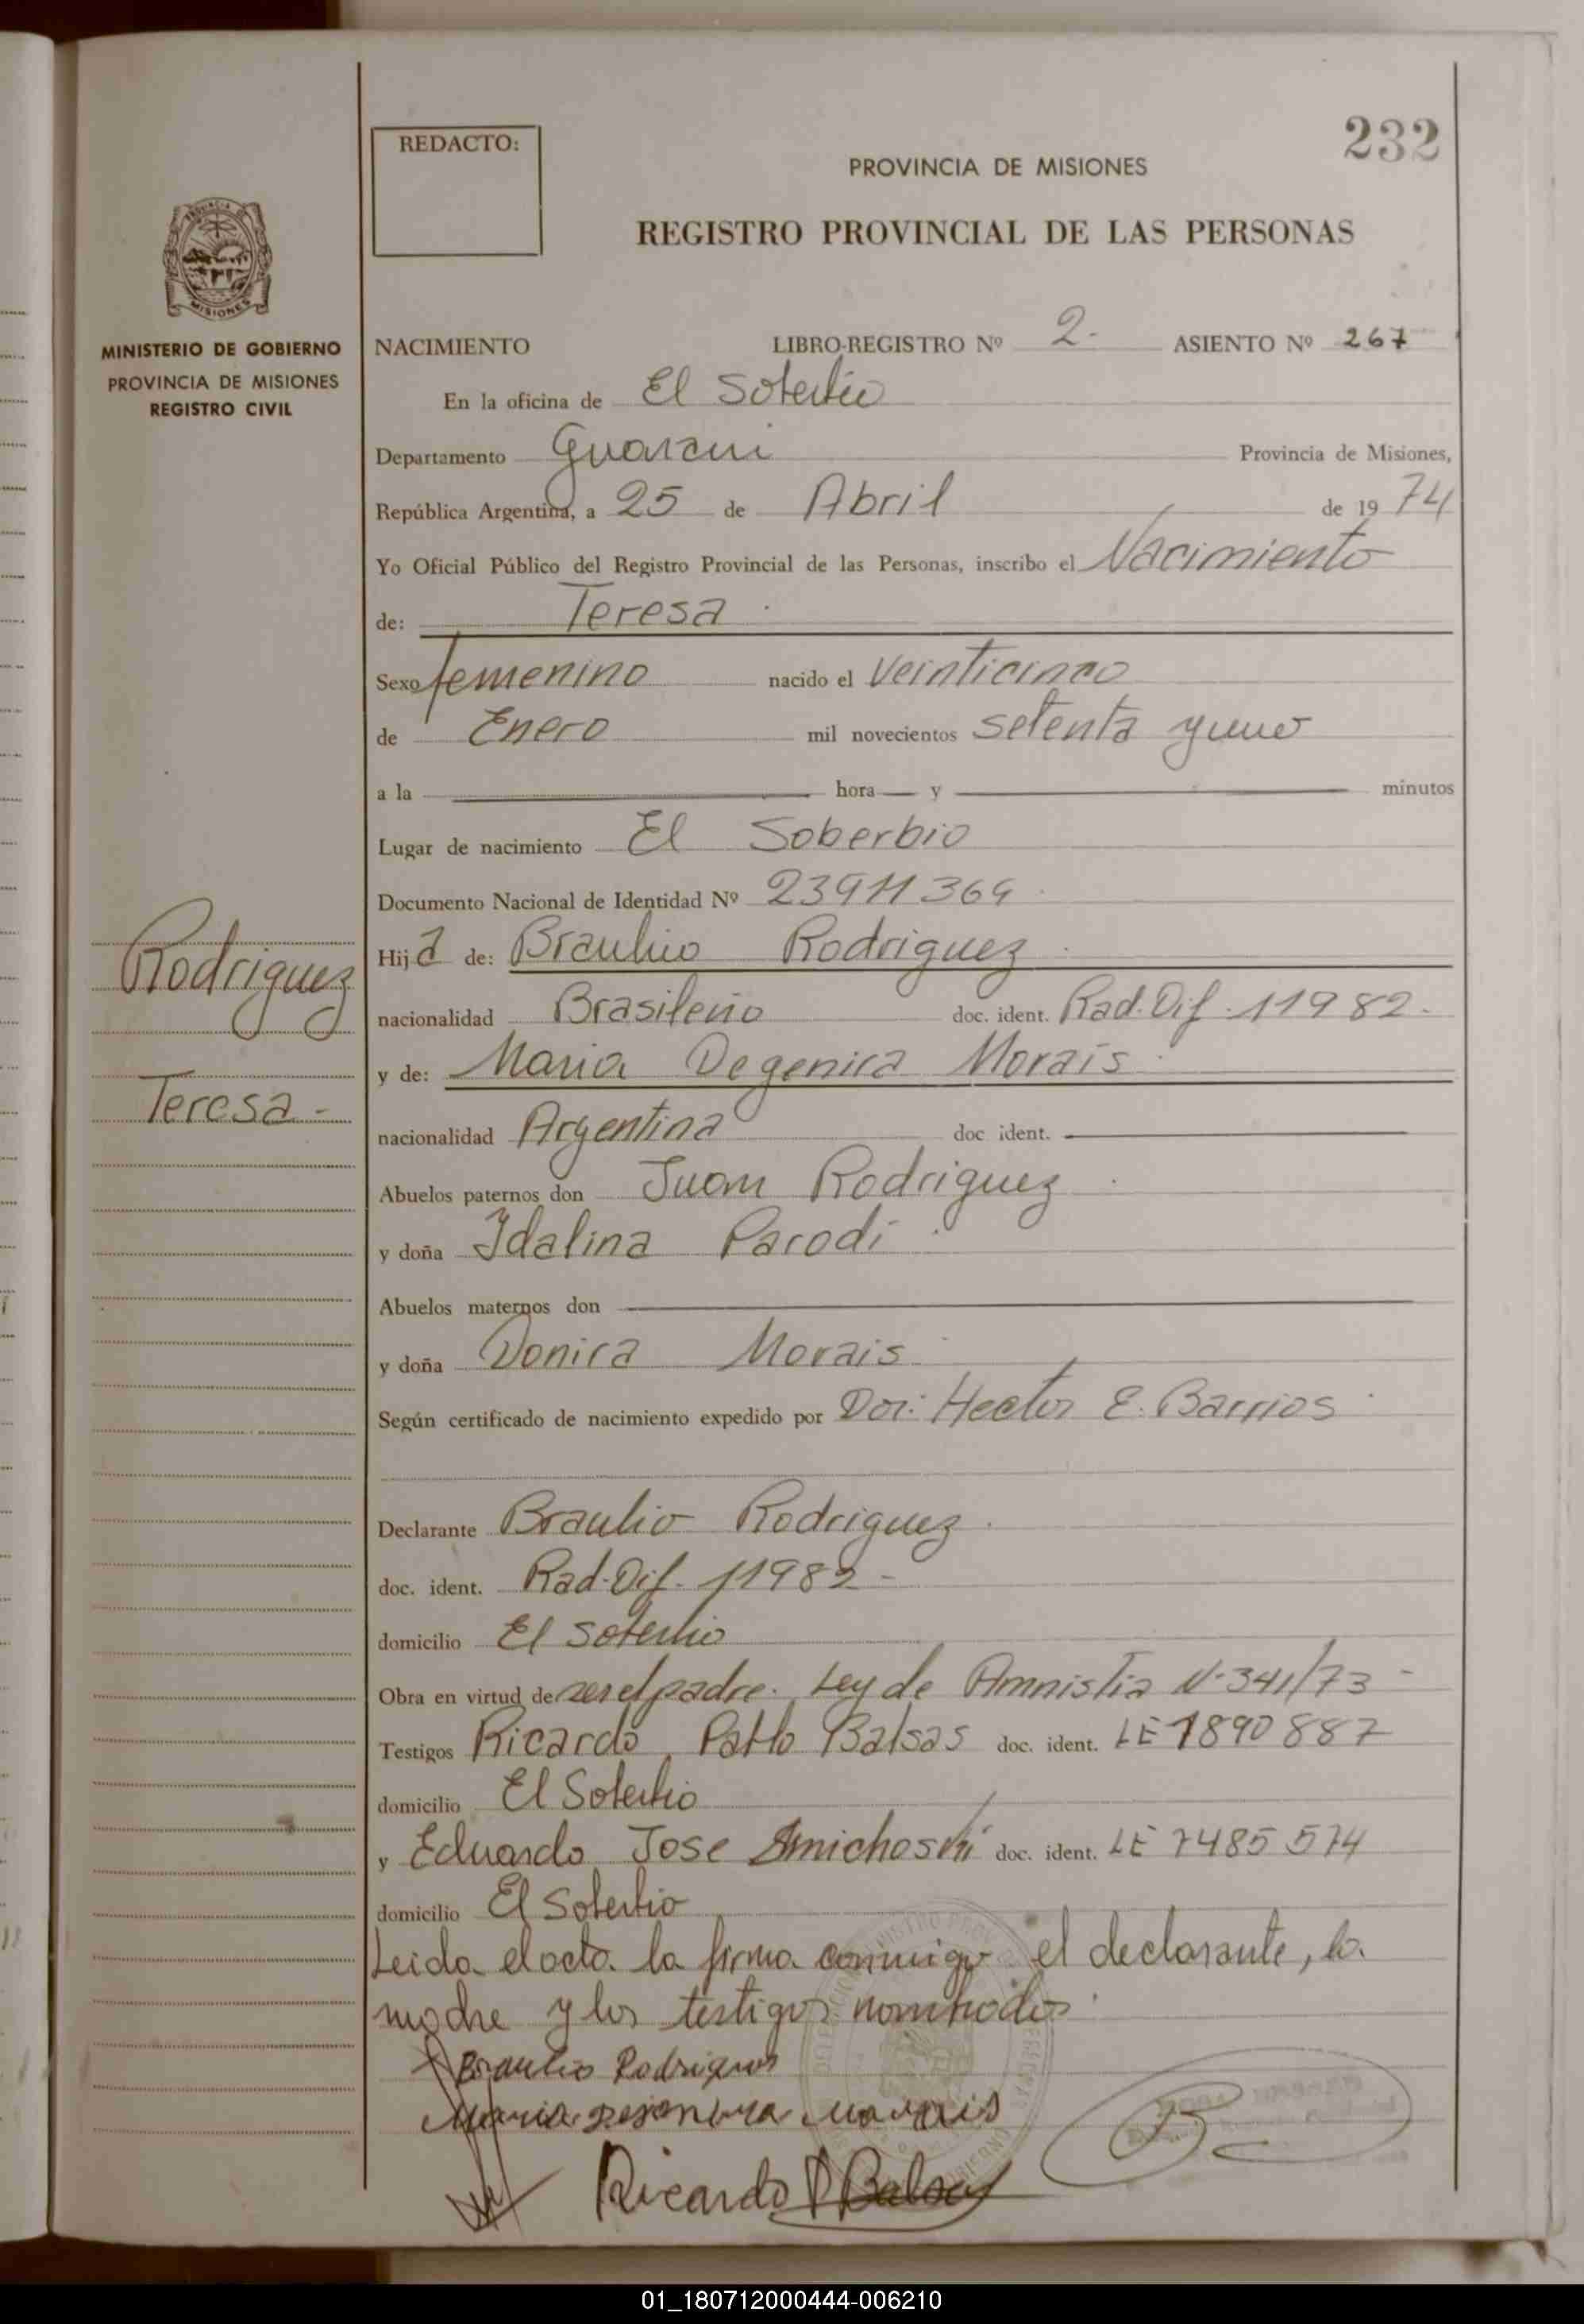 232
REDACTO:
PROVINCIA DE MISIONES
REGISTRO PROVINCIAL DE LAS PERSONAS
MISIONES
MINISTERIO DE GOBIERNO
PROVINCIA DE MISIONES
REGISTRO CIVIL
NACIMIENTO LIBRO-REGISTRO Nº 2- ASIENTO Nº 267
En la oficina de El Soberbio
Departamento Guarani Provincia de Misiones,
República Argentina, a 25 de Abril de 1974
Yo Oficial Público del Registro Provincial de las Personas, inscribo el Nacimiento
de: Teresa
Sexo femenino nacido el veinticinco
de Enero mil novecientos setenta y uno
a la hora y minutos
Lugar de nacimiento El Soberbio
Documento Nacional de Identidad Nº 23911369
Rodriguez
Teresa-
Hija de: Braulio Rodriguez
nacionalidad Brasileño doc. ident. Rad. Dif. 11982-
y de: Maria Degenira Morais
nacionalidad Argentina doc ident.
Abuelos paternos don Juan Rodriguez
y doña Idalina Parodi
Abuelos maternos don
y doña Donira Morais
Según certificado de nacimiento expedido por Dor: Hector E. Barrios
Declarante Braulio Rodriguez
doc. ident. Rad-Dif- 11982-
domicilio El Soberbio
Obra en virtud de ser el padre. Ley de Amnistia N-341/73-
Testigos Ricardo Pablo Balsas doc. ident. LE 7890887
domicilio El Soberbio
y Eduardo Jose doc. ident. LE 7485574
domicilio El Soberbio
Leida el acta la firma conmigo el declarante, la
madre y los testigos nombrados
Braulio Rodrigues
Maria Morais
Ricardo P Balsas
01_180712000444-006210